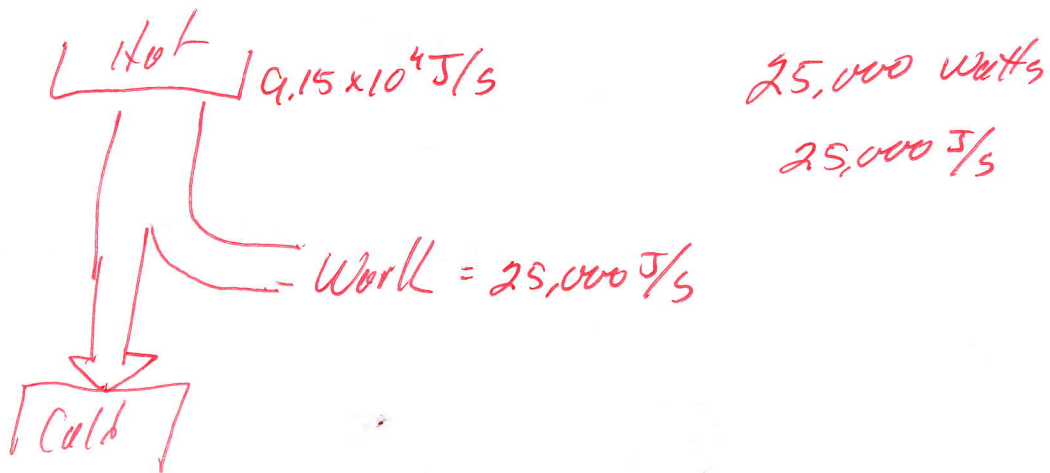 Hot
9.15 x 10⁴ J/s
25,000 watts
25,000 J/s
Work = 25,000 J/s
Cold